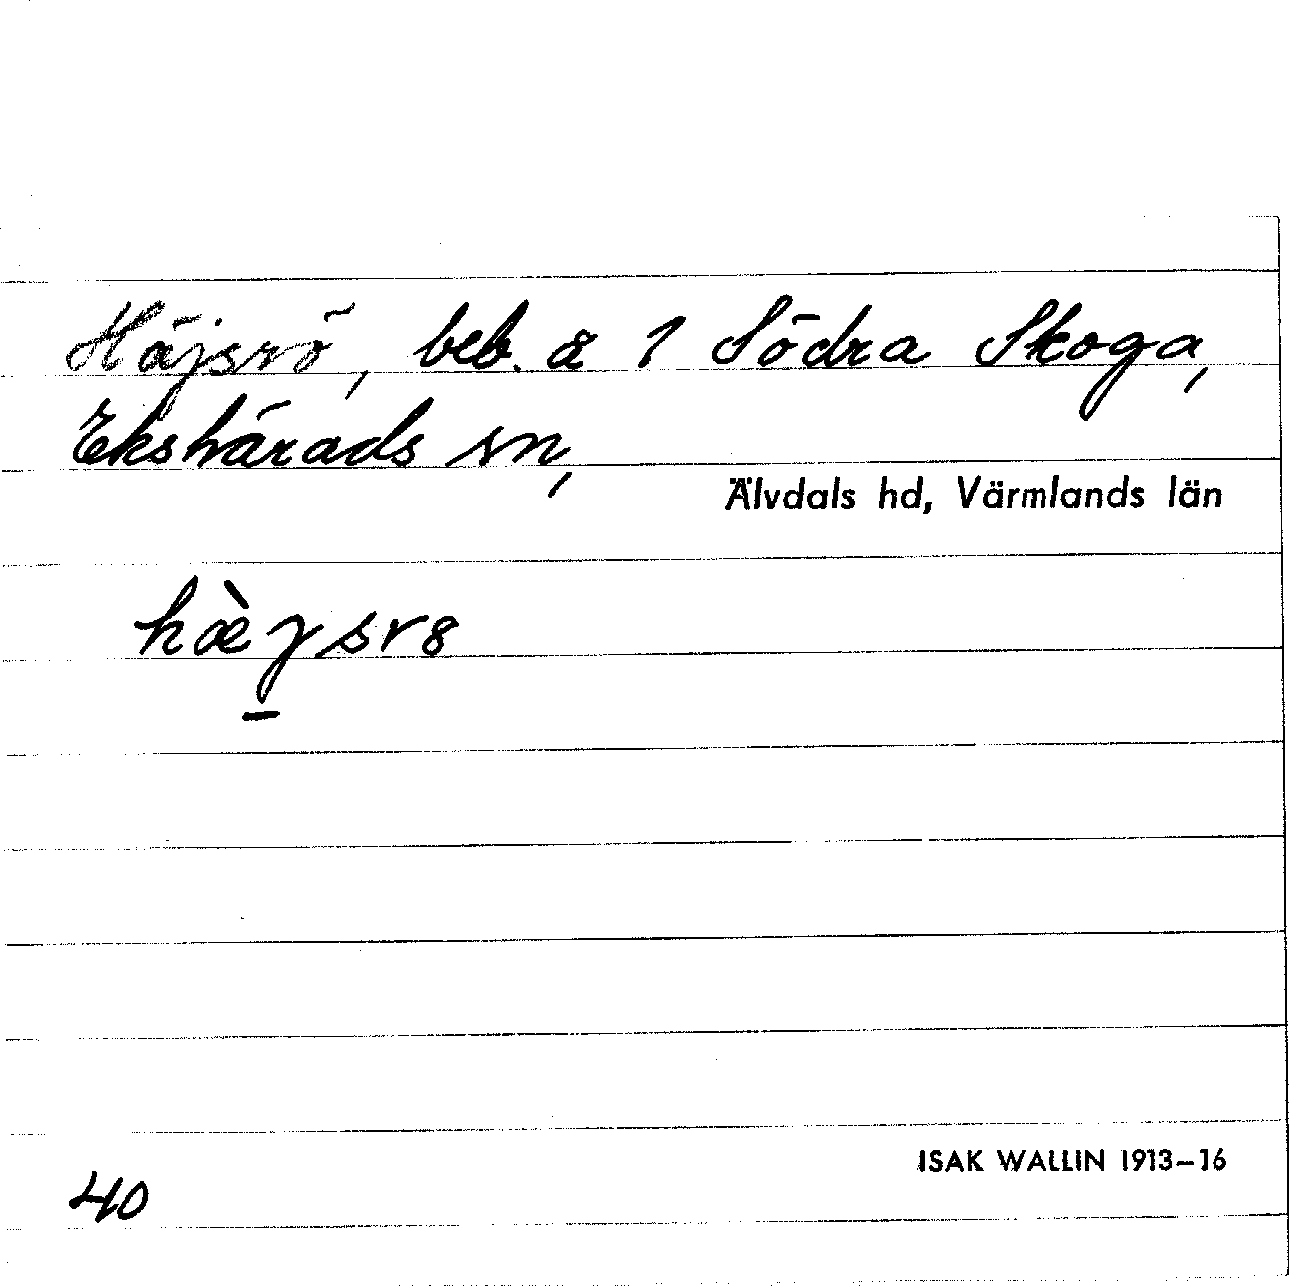 Häjsrö, beb. å 1 Södra Skoga,
Ekshärads sn,
Älvdals hd, Värmlands län
hæ̀γ̱sr8
ISAK WALLIN 1913–16
40